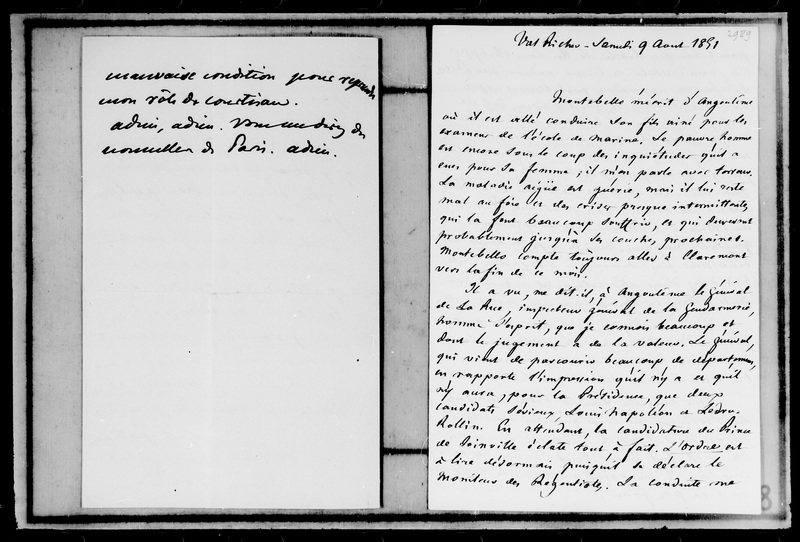 mauvaise condition pour reprendre
mon rôle de courtisan.
adieu, adieu. Vous me direz des
nouvelles de Paris. adieu.
2989
Val Richer - Samedi 9 Aout 1851
Montebello m'écrit d'Angoulême
où il est allé conduire son fils ainé pour les
examens de l'école de marine. Le pauvre homme
est encore sous le coup des inquiétudes qu'il a
eues pour sa femme ; il m'en parle avec terreur.
La maladie aigüe est guérie, mais il lui reste
mal au foie et des crises presque intermittentes
qui la font beaucoup souffrir, et qui dureront
probablement jusqu'à ses couches, prochaines.
Montebello compte toujours aller à Claremont
vers la fin de ce mois.
Il a vu, me dit-il, à Angoulême le général
de La Rue, inspecteur général de la Gendarmerie,
homme d'esprit, que je connois beaucoup et
dont le jugement a de la valeur. Le général,
qui vient de parcourir beaucoup de départemens,
en rapporte l'impression qu'il n'y a et qu'il
n'y aura, pour la Présidence, que deux
candidats sérieux, Louis Napoléon et Ledru-
Rollin. En attendant, la candidature du Prince
de Joinville éclate tout à fait. L'Ordre est
à lire désormais puisqu'il se déclare le
moniteur des Régentistes. La conduite me
8